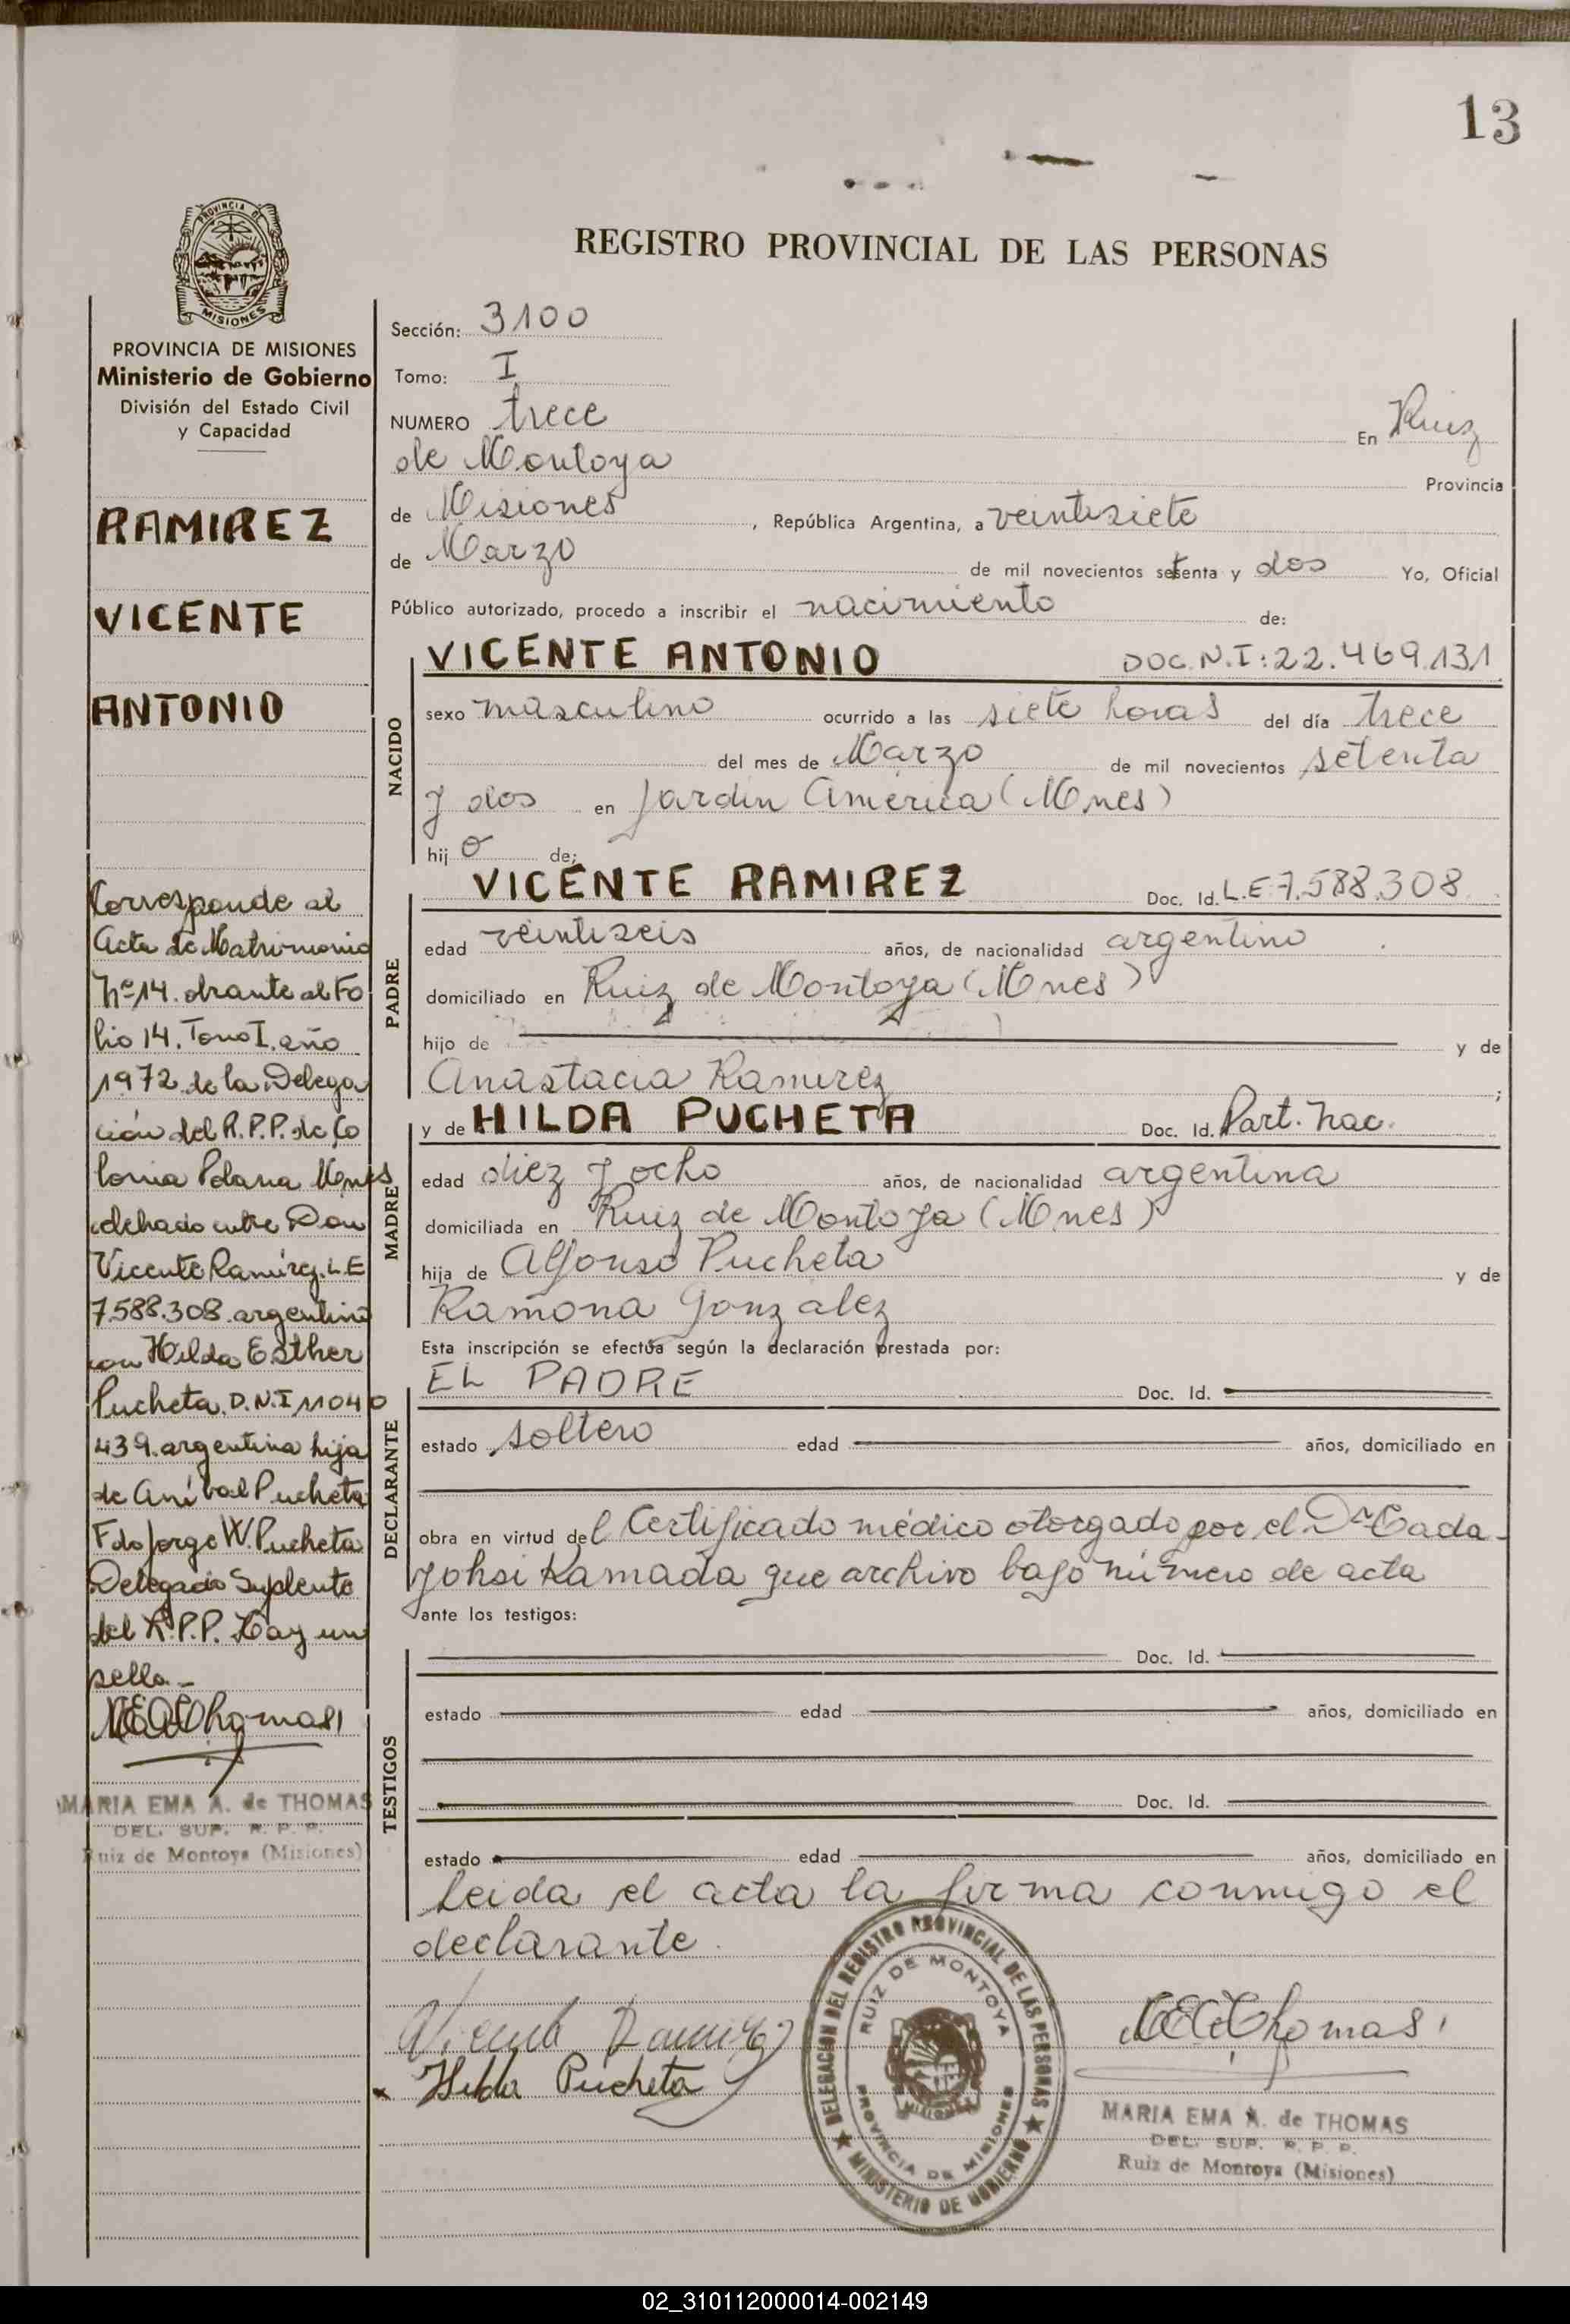 13
PROVINCIA DE
MISIONES
REGISTRO PROVINCIAL DE LAS PERSONAS
PROVINCIA DE MISIONES
Ministerio de Gobierno
División del Estado Civil
y Capacidad
RAMIREZ
VICENTE
ANTONIO
Corresponde al
Acta de Matrimonio
Nº 14. obrante al Fo
lio 14. Tomo I. año
1972 de la Delega
ción del R.P.P. de Co
lonia Polana Mnes
celebrado entre Don
Vicente Ramírez. L.E
7.588.308. argentino
con Hilda Esther
Pucheta. D.N.I 11040
439. argentina hija
de Aníbal Pucheta
Fdo Jorge W. Pucheta
Delegado Suplente
del R.P.P. Hay un
sello.-
MEAThomas
MARIA EMA A. de THOMAS
DEL. SUP. R. P. P.
Ruiz de Montoya (Misiones)
Sección: 3100
Tomo: I
NUMERO trece En Ruiz
de Montoya Provincia
de Misiones, República Argentina, a veintisiete
de Marzo de mil novecientos setenta y dos Yo, Oficial
Público autorizado, procedo a inscribir el nacimiento de:
NACIDO
VICENTE ANTONIO DOC. N.I: 22.469.131
sexo masculino ocurrido a las siete horas del día trece
del mes de Marzo de mil novecientos setenta
y dos en Jardin América (Mnes)
hij o de:
PADRE
VICENTE RAMIREZ Doc. Id. L.E 7.588.308
edad veintiseis años, de nacionalidad argentino
domiciliado en Ruiz de Montoya (Mnes)
hijo de y de
Anastacia Ramirez ;
MADRE
y de HILDA PUCHETA Doc. Id. Part. nac.
edad diez y ocho años, de nacionalidad argentina
domiciliada en Ruiz de Montoya (Mnes)
hija de Alfonso Pucheta y de
Ramona Gonzalez
Esta inscripción se efectúa según la declaración prestada por:
DECLARANTE
EL PADRE Doc. Id.
estado soltero edad años, domiciliado en
obra en virtud del Certificado médico otorgado por el Dr Tada-
Johsi Kamada que archivo bajo número de acta
ante los testigos:
TESTIGOS
Doc. Id.
estado edad años, domiciliado en
Doc. Id.
estado edad años, domiciliado en
Leida el acta la firma conmigo el
declarante.
Vicente Ramirez
x Hilda Pucheta
DELEGACION DEL REGISTRO PROVINCIAL DE LAS PERSONAS
RUIZ DE MONTOYA
PROVINCIA DE MISIONES
MINISTERIO DE GOBIERNO
MEAThomas
MARIA EMA A. de THOMAS
DEL. SUP. R. P. P.
Ruiz de Montoya (Misiones)
02_310112000014-002149